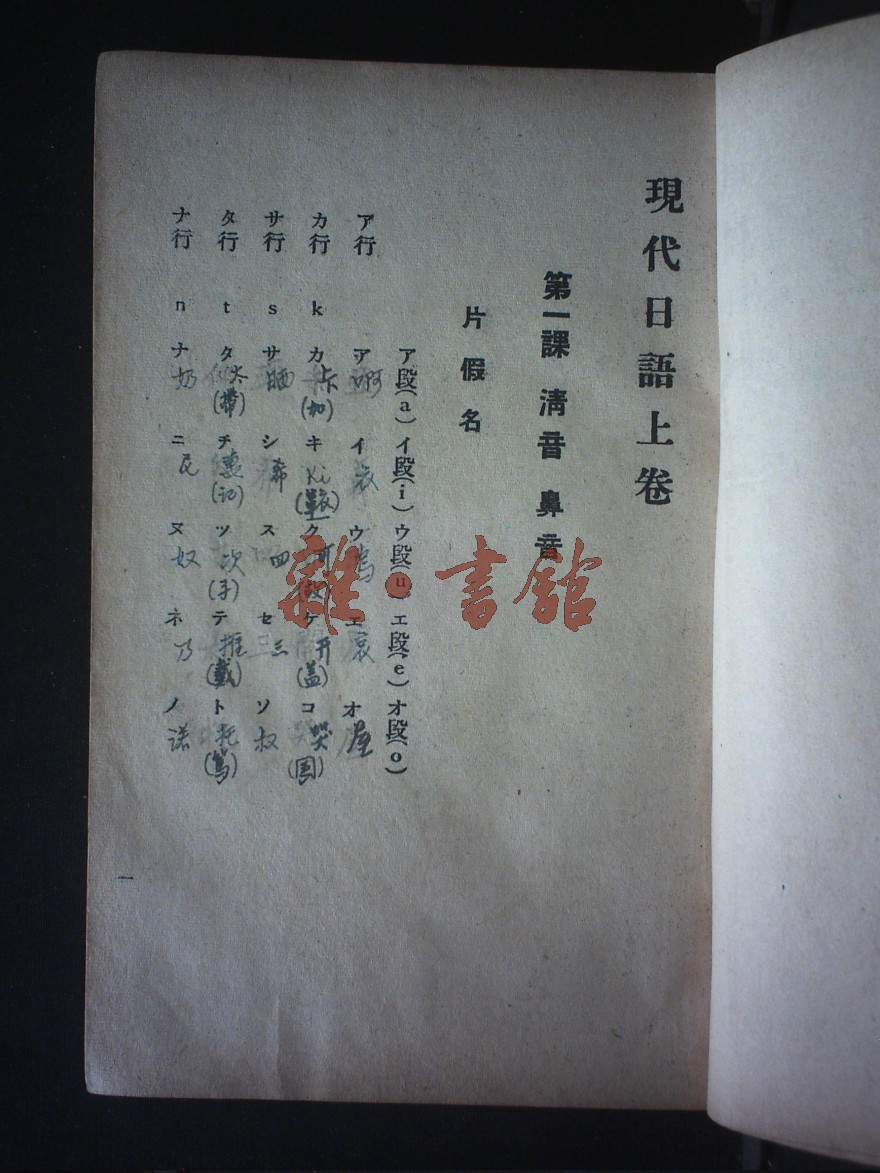 現代日語上卷
第一課 淸音 鼻音
片假名
ア段(a) イ段(i) ウ段(u) エ段(e) オ段(o)
ア行 ア イ ウ エ オ
啊 衣 烏 哀 屋
カ行 k カ キ ク ケ コ
卡 Ki 可 开 哭
(加) (盖) (固)
サ行 s サ シ ス セ ソ
晒 希 四 三 叔
タ行 t タ チ ツ テ ト
太 次 推 托
(帶) (记) (子) (戴) (篤)
ナ行 n ナ ニ ヌ ネ ノ
奶 尼 奴 乃 诺
一
雜·書館